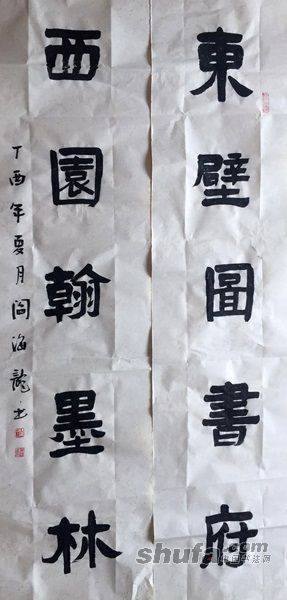 東壁圖書府
西園翰墨林
丁酉年夏月閻海龍书
shufa.com
中国书法网